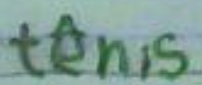 tênis